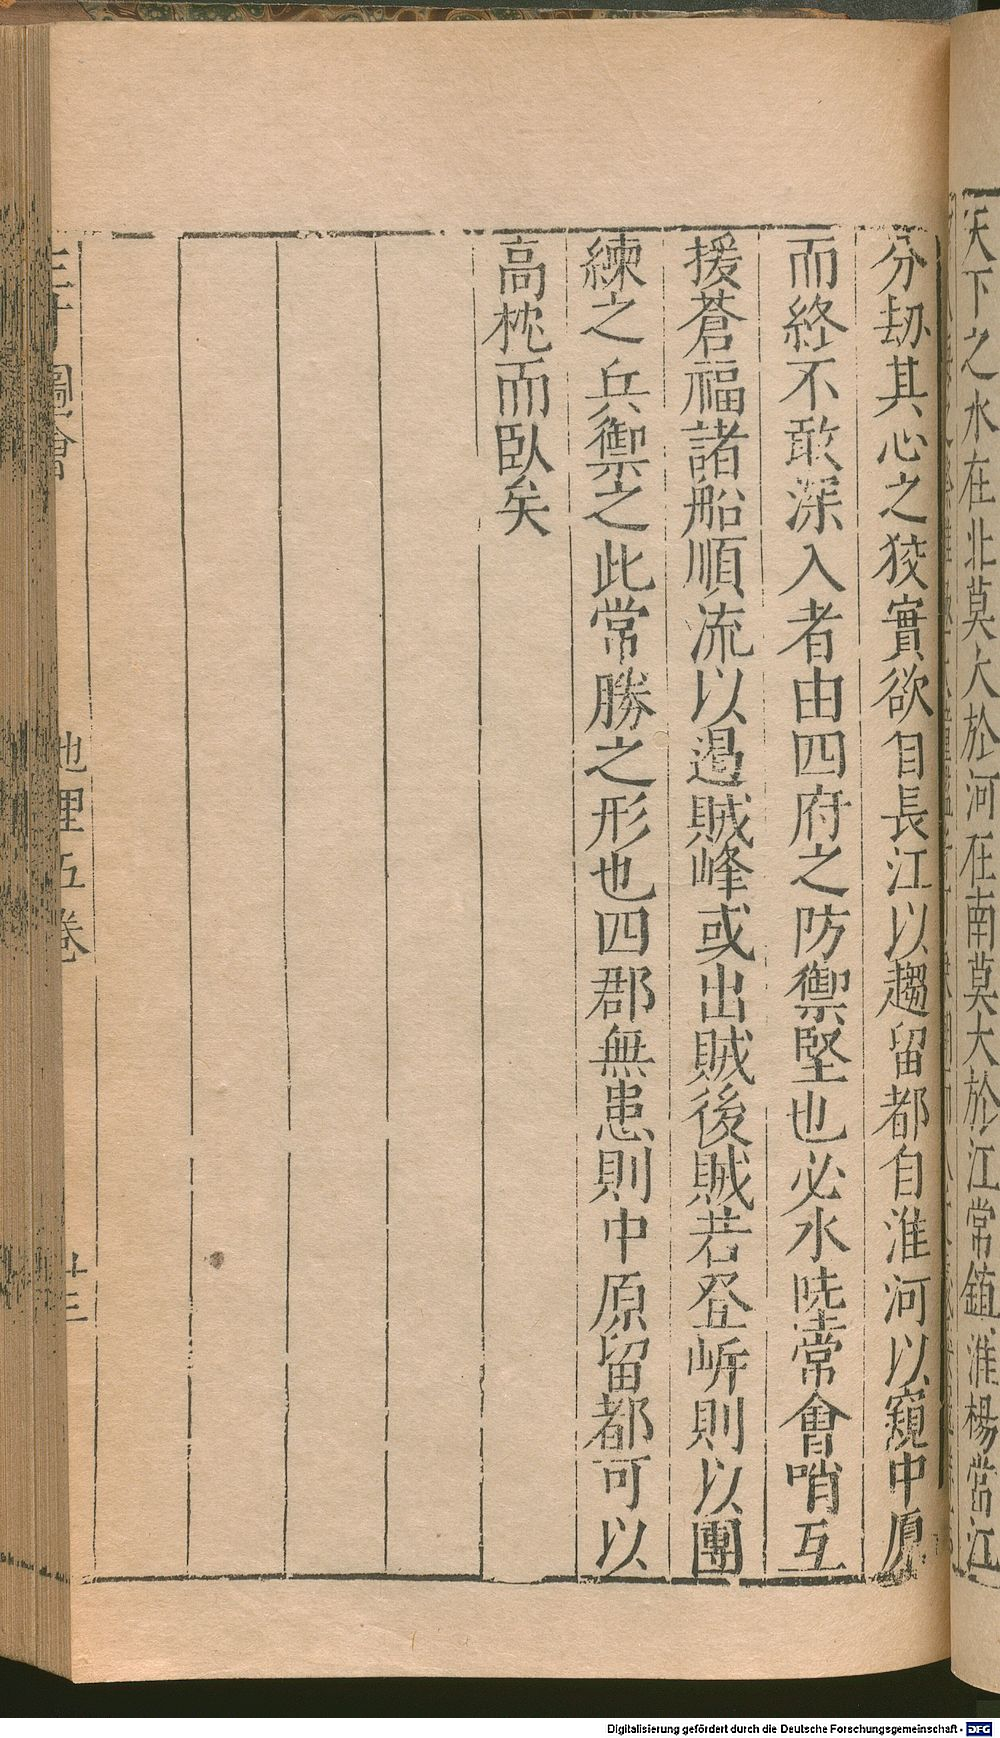 天下之水在北莫大於河在南莫大於江常鎮淮楊當江
分刼其心之狡實欲自長江以趨留都自淮河以窺中原
而終不敢深入者由四府之防禦堅也必水陸常會哨互
援蒼福諸船順流以遏賊峰或出賊後賊若登岍則以團
練之兵禦之此常勝之形也四郡無患則中原留都可以
高枕而臥矣
三才圖會
地理五卷
廿三
Digitalisierung gefördert durch die Deutsche Forschungsgemeinschaft - DFG